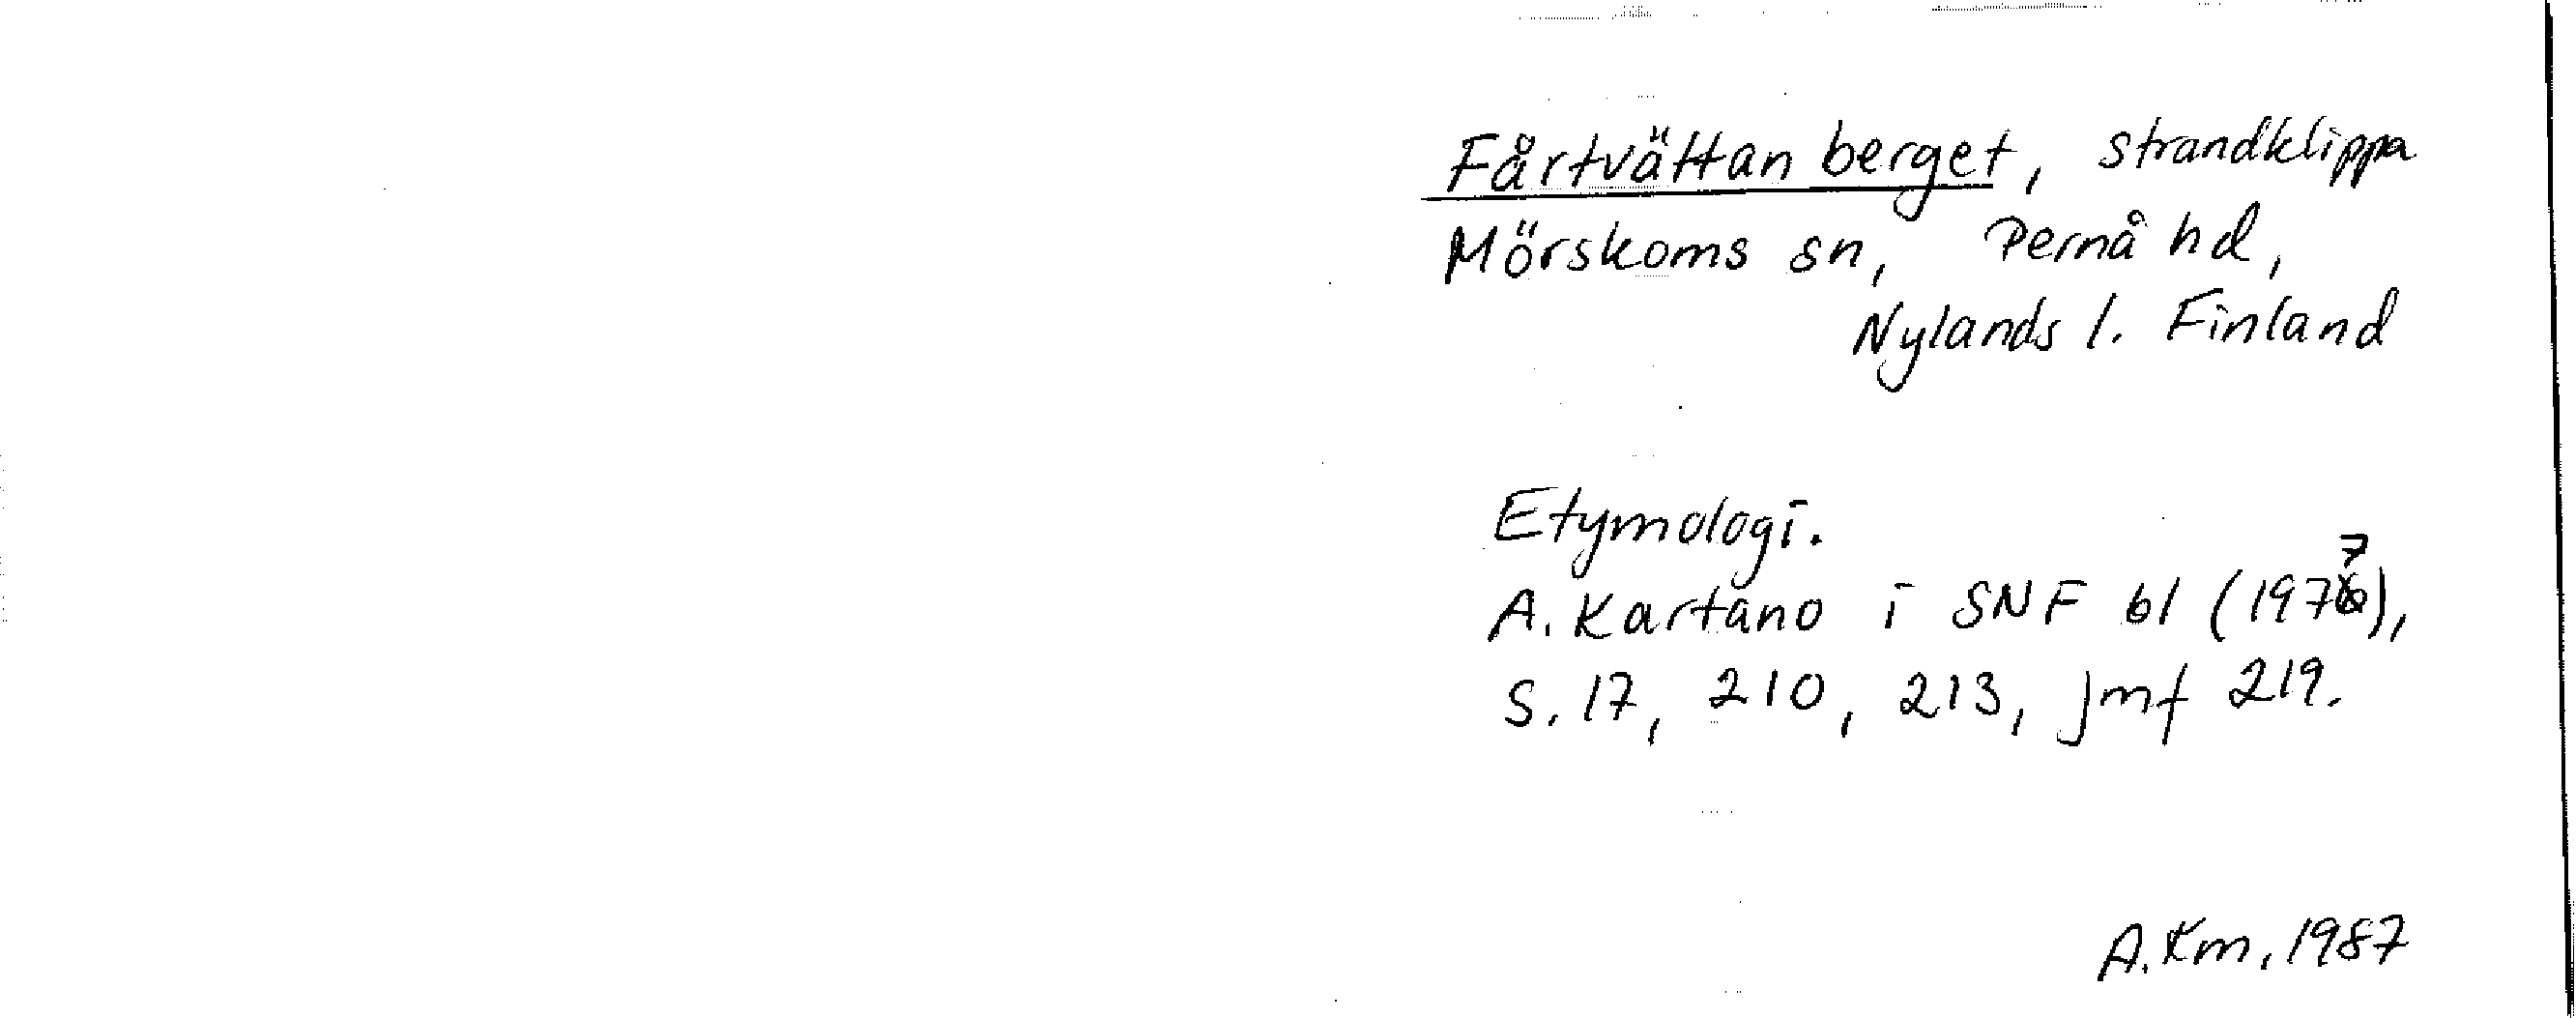 Fårtvättan berget, strandklippa
Mörskoms sn, Pernå hd,
Nylands l. Finland
Etymologi.
A. Kartano i SNF 61 (1977),
S. 17, 210, 213, jmf 219.
A.Km, 1987